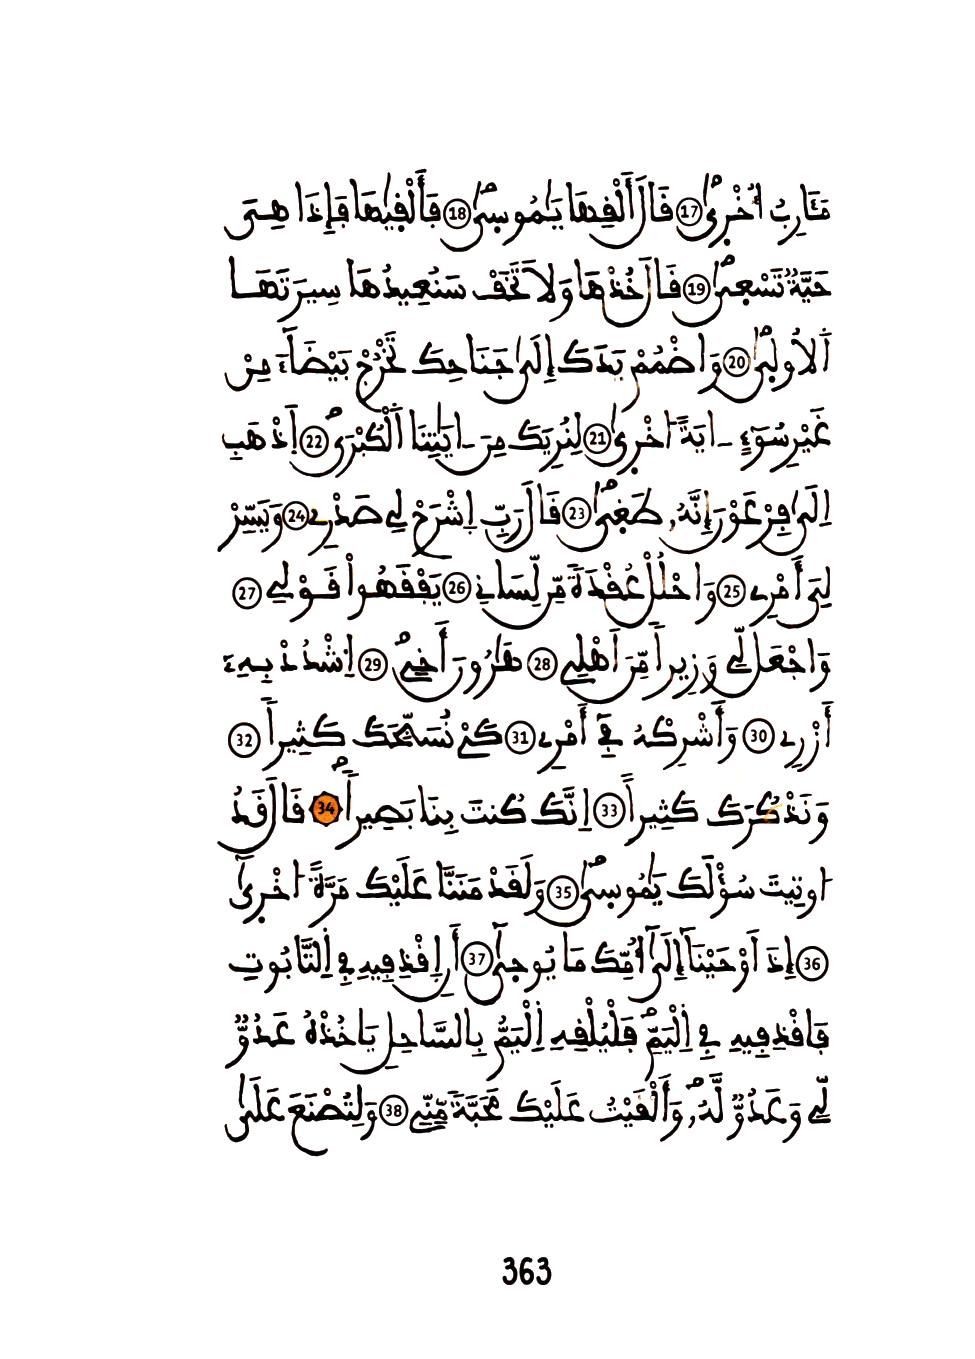 مَـَٔارِبُ أُخْر۪يٰۖ 17 قَالَ أَلْقِهَا يَٰمُوس۪يٰۖ 18 فَأَلْق۪يٰهَا فَإِذَا هِيَ
حَيَّةٞ تَسْع۪يٰۖ 19 قَالَ خُذْهَا وَلَا تَخَفْ سَنُعِيدُهَا سِيرَتَهَا
اَ۬لُاول۪يٰۖ 20 وَاضْمُمْ يَدَكَ إِلَيٰ جَنَاحِكَ تَخْرُجْ بَيْضَآءَ مِنْ
غَيْرِ سُوٓءٍ ـ ايَةً اخْر۪يٰ 21 لِنُرِيَكَ مِنَ ـ ايَٰتِنَا اَ۬لْكُبْرَيۖ 22 اَ۪ذْهَبِ
اِلَيٰ فِرْعَوْنَ إِنَّهُۥ طَغ۪يٰۖ 23 قَالَ رَبِّ اِ۪شْرَحْ لِے صَدْرِے 24 وَيَسِّرْ
لِيَ أَمْرِے 25 وَاحْلُلْ عُقْدَةٗ مِّن لِّسَانِے 26 يَفْقَهُواْ قَوْلِے 27
وَاجْعَل لِّے وَزِيراٗ مِّنَ اَهْلِے 28 هَٰرُونَ أَخِےۖ 29 اِ۟شْدُدْ بِهِۦٓ
أَزْرِے 30 وَأَشْرِكْهُ فِےٓ أَمْرِے 31 كَےْ نُسَبِّحَكَ كَثِيراٗ 32
وَنَذْكُرَكَ كَثِيراً 33 اِنَّكَ كُنتَ بِنَا بَصِيراٗۖ 34 قَالَ قَدُ
اوتِيتَ سُؤْلَكَ يَٰمُوس۪يٰۖ 35 وَلَقَدْ مَنَنَّا عَلَيْكَ مَرَّةً اخْر۪يٰٓ
36 إِذَ اَوْحَيْنَآ إِلَيٰٓ أُمِّكَ مَا يُوح۪يٰٓ 37 أَنِ اِ۪قْذِفِيهِ فِے اِ۬لتَّابُوتِ
فَاقْذِفِيهِ فِے اِ۬لْيَمِّۖ فَلْيُلْقِهِ اِ۬لْيَمُّ بِالسَّاحِلِ يَاخُذْهُ عَدُوّٞ
لِّے وَعَدُوّٞ لَّهُۥۖ وَأَلْقَيْتُ عَلَيْكَ مَحَبَّةٗ مِّنِّے 38 وَلِتُصْنَعَ عَلَيٰ
363